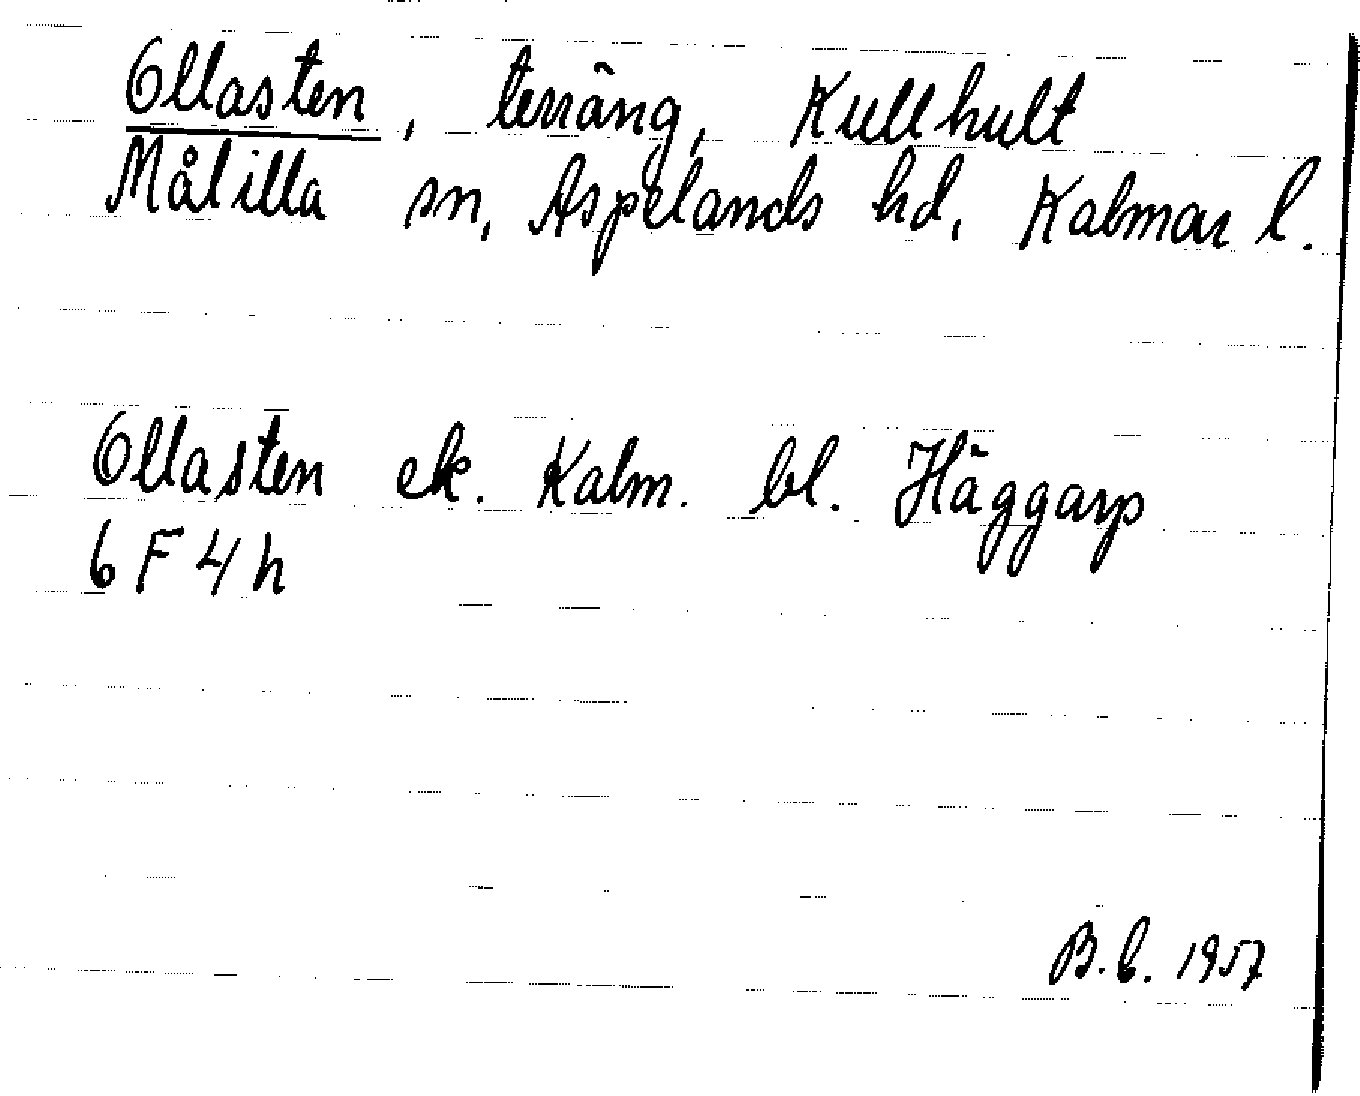 Ollasten, terräng, Kullhult
Målilla sn, Aspelands hd, Kalmar l.
Ollasten ek. Kalm. bl. Häggarp
6 F 4 h
B.b. 1957